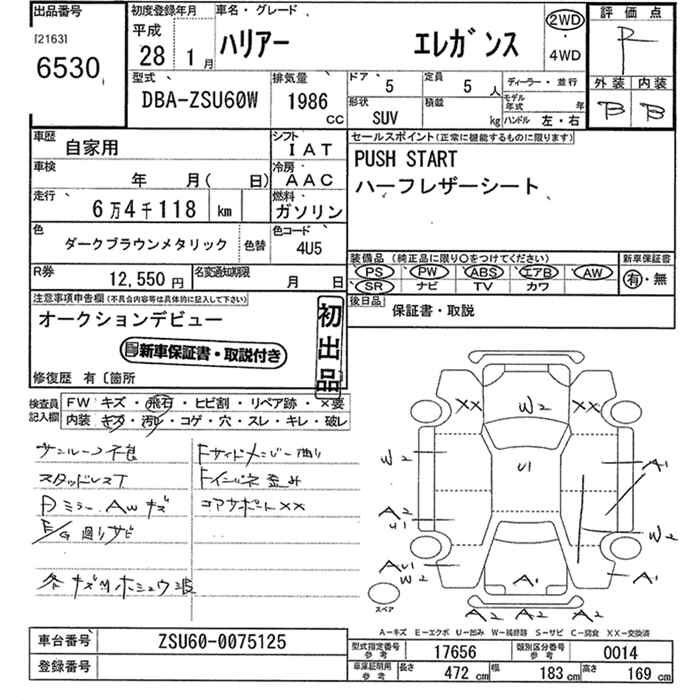 出品番号
[2163]
6530
初度登録年月
平成
28 1月
車名・グレード
ハリアー エレガンス
2WD
・
4WD
評価点
R
外装 内装
B B
型式
DBA-ZSU60W
排気量
1986 CC
ドア 5
定員 5 人
ディーラー・並行
形状 SUV
積載 kg
モデル年式 年
ハンドル 左・右
車歴 自家用
シフト IAT
セールスポイント(正常に機能するものに限ります)
PUSH START
ハーフレザーシート
車検 年 月( 日)
冷房 AAC
走行 6万4千118 km
燃料 ガソリン
色 ダークブラウンメタリック 色替
色コード 4U5
装備品(純正品に限り○をつけてください) 新車保証書
PS PW ABS エアB AW 有・無
SR ナビ TV カワ
R券 12,550円
名変通知期限 月 日
後日品 保証書・取説
注意事項申告欄(不具合内容等は具体的に記入して下さい)
オークションデビュー
新車保証書・取説付き
初出品
修復歴 有〔箇所
検査員記入欄
FW キズ・飛石・ヒビ割・リペア跡・×要
内装 キズ・汚レ・コゲ・穴・スレ・キレ・破レ
サンルーフ不良
スタッドレスT
Dミラー、AWキズ
E/G回りサビ
Fサイドメンバー曲り
Fインパネ歪み
コアサポートXX
XX W2 XX
W2 U1 A1
A2
U1
W2
AU1
W2 A1 A1
A2 A2 A2
スペア
A-キズ E-エクボ U-凹み W-補修跡 S-サビ C-腐食 XX-交換済
車台番号 ZSU60-0075125
登録番号
型式指定番号参考 17656 類別区分番号参考 0014
車庫証明用参考 長さ 472 cm 幅 183 cm 高さ 169 cm